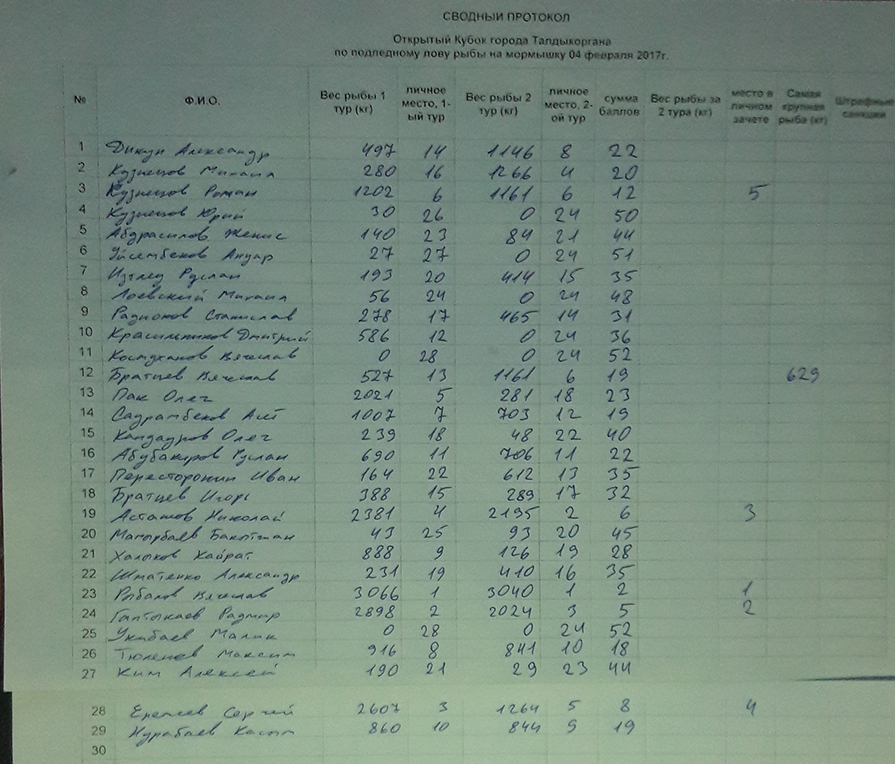 СВОДНЫЙ ПРОТОКОЛ
Открытый Кубок города Талдыкоргана
по подледному лову рыбы на мормышку 04 февраля 2017г.
№ Ф.И.О. Вес рыбы 1 тур (кг) личное место, 1-ый тур Вес рыбы 2 тур (кг) личное место, 2-ой тур сумма баллов Вес рыбы за 2 тура (кг) место в личном зачете Самая крупная рыба (кг) Штрафные санкции
1 Дикун Александр 497 14 1146 8 22
2 Кузнецов Михаил 280 16 1266 4 20
3 Кузнецов Роман 1202 6 1161 6 12 5
4 Кузнецов Юрий 30 26 0 24 50
5 Абдрасилов Женис 140 23 84 21 44
6 Уйсембеков Ануар 27 27 0 24 51
7 Руслан 193 20 414 15 35
8 Лоевский Михаил 56 24 0 24 48
9 Радионов Станислав 278 17 465 14 31
10 Красильников Дмитрий 586 12 0 24 36
11 Вячеслав 0 28 0 24 52
12 Братцев Вячеслав 527 13 1161 6 19 629
13 Пак Олег 2021 5 281 18 23
14 Садрамбеков 1007 7 703 12 19
15 Кандауров Олег 239 18 48 22 40
16 Абубакиров Руслан 690 11 706 11 22
17 Пересторонин Иван 164 22 612 13 35
18 Братцев Игорь 388 15 289 17 32
19 Асташов Николай 2381 4 2195 2 6 3
20 43 25 93 20 45
21 Халыков Кайрат 888 9 126 19 28
22 Шматенко Александр 231 19 410 16 35
23 Рыбалов Вячеслав 3066 1 3040 1 2 1
24 2898 2 2024 3 5 2
25 Малик 0 28 0 24 52
26 Тюленев Максим 916 8 841 10 18
27 Ким Алексей 190 21 29 23 44
28 Сергей 2607 3 1264 5 8 4
29 Нурабаев 860 10 844 9 19
30